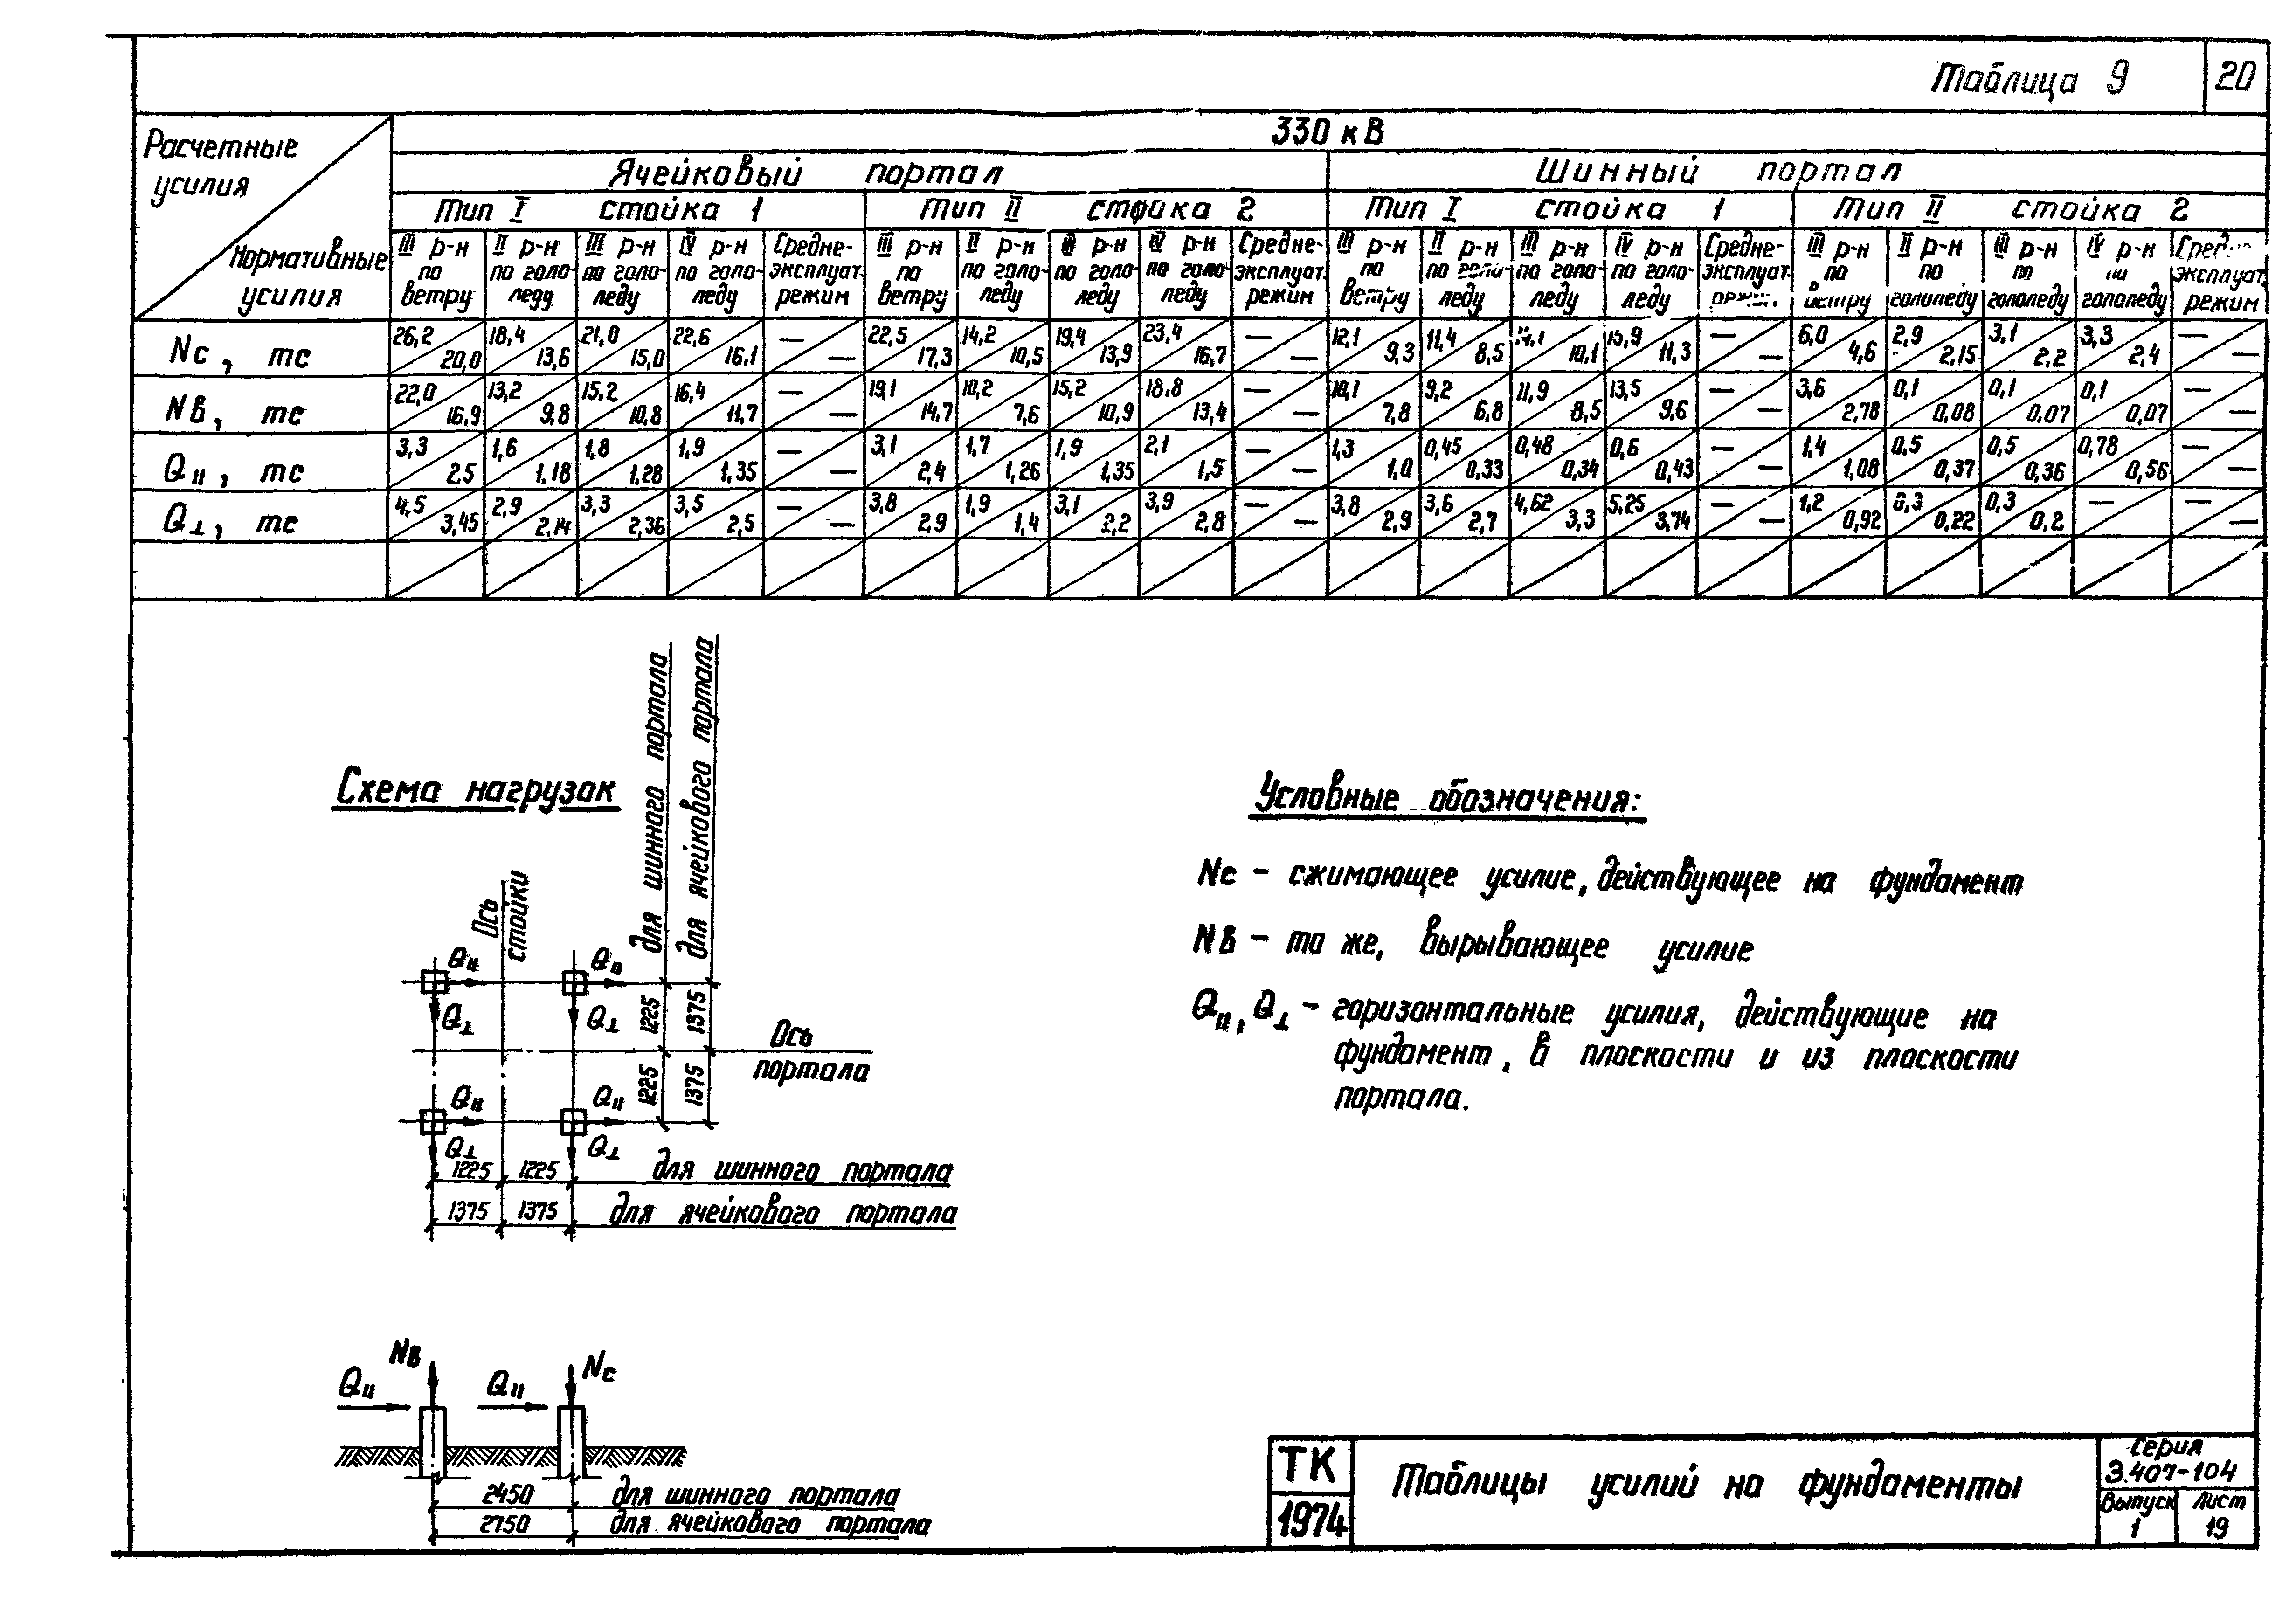 Таблица 9
20
Расчетные усилия
Нормативные усилия
330 кВ
Ячейковый портал
Шинный портал
Тип I стойка 1
Тип II стойка 2
Тип I стойка 1
Тип II стойка 2
III р-н по ветру
II р-н по голо-леду
III р-н по голо-леду
IV р-н по голо-леду
Средне-эксплуат. режим
III р-н по ветру
II р-н по голо-леду
III р-н по голо-леду
IV р-н по голо-леду
Средне-эксплуат. режим
III р-н по ветру
II р-н по голо-леду
III р-н по голо-леду
IV р-н по голо-леду
Средне-эксплуат. режим
III р-н по ветру
II р-н по гололеду
III р-н по гололеду
IV р-н по гололеду
Средне эксплуат. режим
Nс, тс 26,2 20,0 18,4 13,6 21,0 15,0 22,6 16,1 — — 22,5 17,3 14,2 10,5 19,4 13,9 23,4 16,7 — — 12,1 9,3 11,4 8,5 10,1 15,9 11,3 — — 6,0 4,6 2,9 2,15 3,1 2,2 3,3 2,4 — —
Nв, тс 22,0 16,9 13,2 9,8 15,2 10,8 16,4 11,7 — — 19,1 14,7 10,2 7,6 15,2 10,9 18,8 13,4 — — 10,1 7,8 9,2 6,8 11,9 8,5 13,5 9,6 — — 3,6 2,78 0,1 0,08 0,1 0,07 0,1 0,07 — —
Q||, тс 3,3 2,5 1,6 1,18 1,8 1,28 1,9 1,35 — — 3,1 2,4 1,7 1,26 1,9 1,35 2,1 1,5 — — 1,3 1,0 0,45 0,33 0,48 0,34 0,6 0,43 — — 1,4 1,08 0,5 0,37 0,5 0,36 0,78 0,56 — —
Q⊥, тс 4,5 3,45 2,9 2,14 3,3 2,36 3,5 2,5 — — 3,8 2,9 1,9 1,4 3,1 2,2 3,9 2,8 — — 3,8 2,9 3,6 2,7 4,62 3,3 5,25 3,74 — — 1,2 0,92 0,3 0,22 0,3 0,2 — — —
Схема нагрузок
Ось стойки
для шинного портала
для ячейкового портала
Q|| Q||
Q⊥ Q⊥
1225 1375
Ось портала
1225 1375
Q|| Q||
Q⊥ Q⊥
1225 1225 для шинного портала
1375 1375 для ячейкового портала
Nв Nс
Q|| Q||
2450 для шинного портала
2750 для ячейкового портала
Условные обозначения:
Nс – сжимающее усилие, действующее на фундамент
Nв – то же, вырывающее усилие
Q||, Q⊥ – горизонтальные усилия, действующие на
фундамент, в плоскости и из плоскости
портала.
ТК
1974
Таблицы усилий на фундаменты
Серия
3.407-104
Выпуск 1
Лист 19